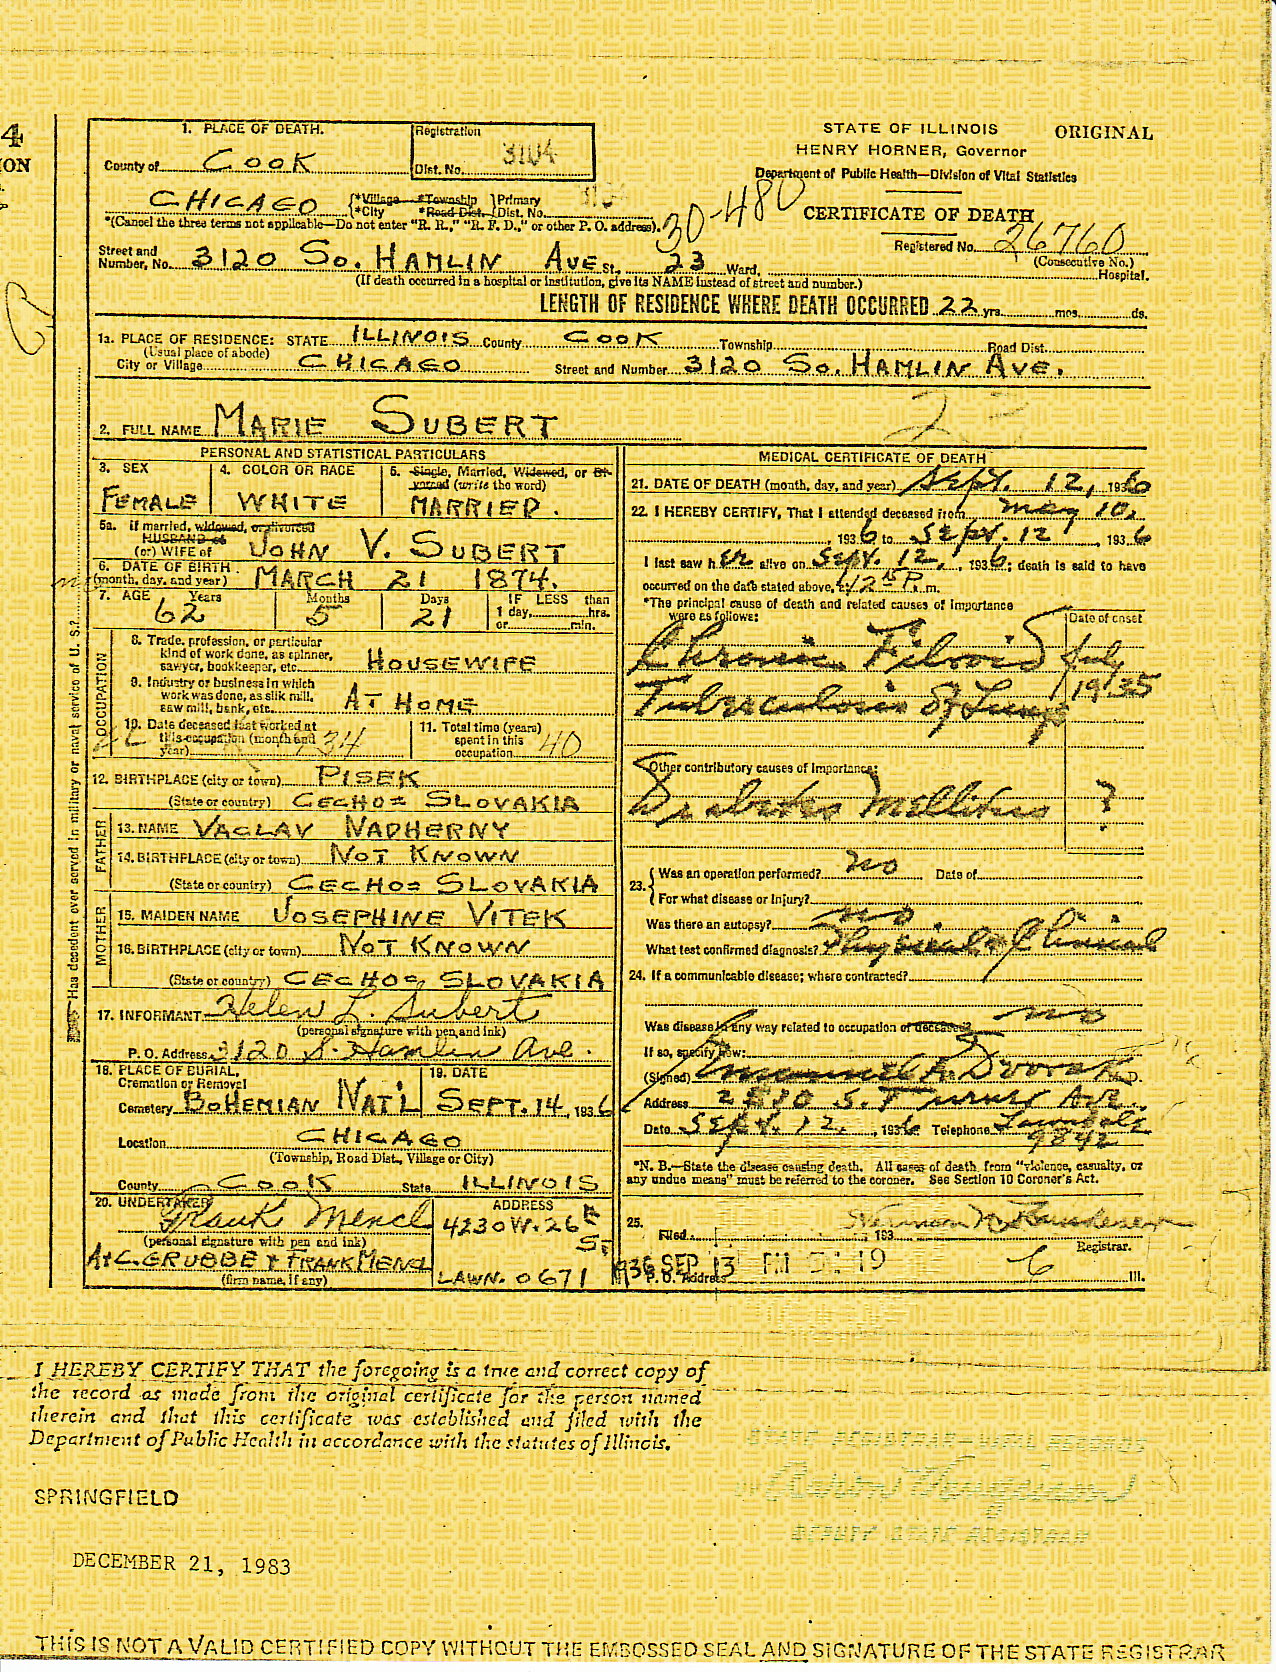 4
ION
1. PLACE OF DEATH.
Registration
Dist. No. 3104
STATE OF ILLINOIS
HENRY HORNER, Governor
ORIGINAL
Department of Public Health—Division of Vital Statistics
County of COOK
CHICAGO {*Village *Township *City *Road Dist. } Primary Dist. No. 3104
*(Cancel the three terms not applicable—Do not enter "R. R.," "R. F. D.," or other P. O. address).
30-480
CERTIFICATE OF DEATH
Registered No. 26760
(Consecutive No.)
Street and Number, No. 3120 SO. HAMLIN AVE St., 23 Ward, Hospital.
(If death occurred in a hospital or institution, give its NAME instead of street and number.)
LENGTH OF RESIDENCE WHERE DEATH OCCURRED 22 yrs. mos. ds.
1a. PLACE OF RESIDENCE: STATE ILLINOIS County COOK Township Road Dist.
(Usual place of abode)
City or Village CHICAGO Street and Number 3120 SO. HAMLIN AVE.
2. FULL NAME MARIE SUBERT
23
PERSONAL AND STATISTICAL PARTICULARS
3. SEX FEMALE
4. COLOR OR RACE WHITE
5. Single, Married, Widowed, or Divorced (write the word) MARRIED.
5a. If married, widowed, or divorced
HUSBAND of
(or) WIFE of JOHN V. SUBERT
6. DATE OF BIRTH
(month, day, and year) MARCH 21 1874.
7. AGE Years 62 Months 5 Days 21 IF LESS than 1 day, hrs. or min.
OCCUPATION
8. Trade, profession, or particular kind of work done, as spinner, sawyer, bookkeeper, etc. HOUSEWIFE
9. Industry or business in which work was done, as silk mill, saw mill, bank, etc. AT HOME
10. Date deceased last worked at this occupation (month and year) 34
11. Total time (years) spent in this occupation 40
12. BIRTHPLACE (city or town) PISEK
(State or country) CECHO= SLOVAKIA
FATHER
13. NAME VACLAV NADHERNY
14. BIRTHPLACE (city or town) NOT KNOWN
(State or country) CECHO= SLOVAKIA
MOTHER
15. MAIDEN NAME JOSEPHINE VITEK
16. BIRTHPLACE (city or town) NOT KNOWN
(State or country) CECHO= SLOVAKIA
17. INFORMANT Helen L. Subert
(personal signature with pen and ink)
P. O. Address 3120 S. Hamlin Ave.
18. PLACE OF BURIAL, Cremation or Removal
Cemetery BOHEMIAN NAT'L
19. DATE SEPT. 14, 1936
Location CHICAGO
(Township, Road Dist., Village or City)
County COOK State ILLINOIS
20. UNDERTAKER Frank Mencl
(personal signature with pen and ink)
A+C. GRUBBE & FRANK MENCL
(firm name, if any)
ADDRESS
4230 W. 26th ST.
LAWN. 0671
Has decedent ever served in military or naval service of U. S.?
MEDICAL CERTIFICATE OF DEATH
21. DATE OF DEATH (month, day, and year) Sept. 12, 1936
22. I HEREBY CERTIFY, That I attended deceased from May 10,
, 1936 to Sept. 12, 1936
I last saw her alive on Sept. 12, , 1936; death is said to have
occurred on the date stated above, at 12 15 P. m.
*The principal cause of death and related causes of importance were as follows:
Date of onset
Chronic Fibroid July
Tuberculosis of Lungs 1935
Other contributory causes of importance:
Diabetes Mellitus ?
23. Was an operation performed? no Date of
For what disease or injury?
Was there an autopsy? no
What test confirmed diagnosis? Physical & Clinical
24. If a communicable disease; where contracted?
Was disease in any way related to occupation of deceased? no
If so, specify how:
(Signed) Emanuel R. Dvorak M. D.
Address 2330 S. Turner Ave.
Date Sept. 12, , 1936 Telephone Lawndale 9842
*N. B.—State the disease causing death. All cases of death from "violence, casualty, or any undue means" must be referred to the coroner. See Section 10 Coroner's Act.
25.
Filed 193 Herman N. Bundesen
Registrar.
1936 SEP 13 PM 19
P. O. Address Ill.
I HEREBY CERTIFY THAT the foregoing is a true and correct copy of
the record as made from the original certificate for the person named
therein and that this certificate was established and filed with the
Department of Public Health in accordance with the statutes of Illinois.
STATE REGISTRAR
DEPUTY STATE REGISTRAR
SPRINGFIELD
DECEMBER 21, 1983
THIS IS NOT A VALID CERTIFIED COPY WITHOUT THE EMBOSSED SEAL AND SIGNATURE OF THE STATE REGISTRAR